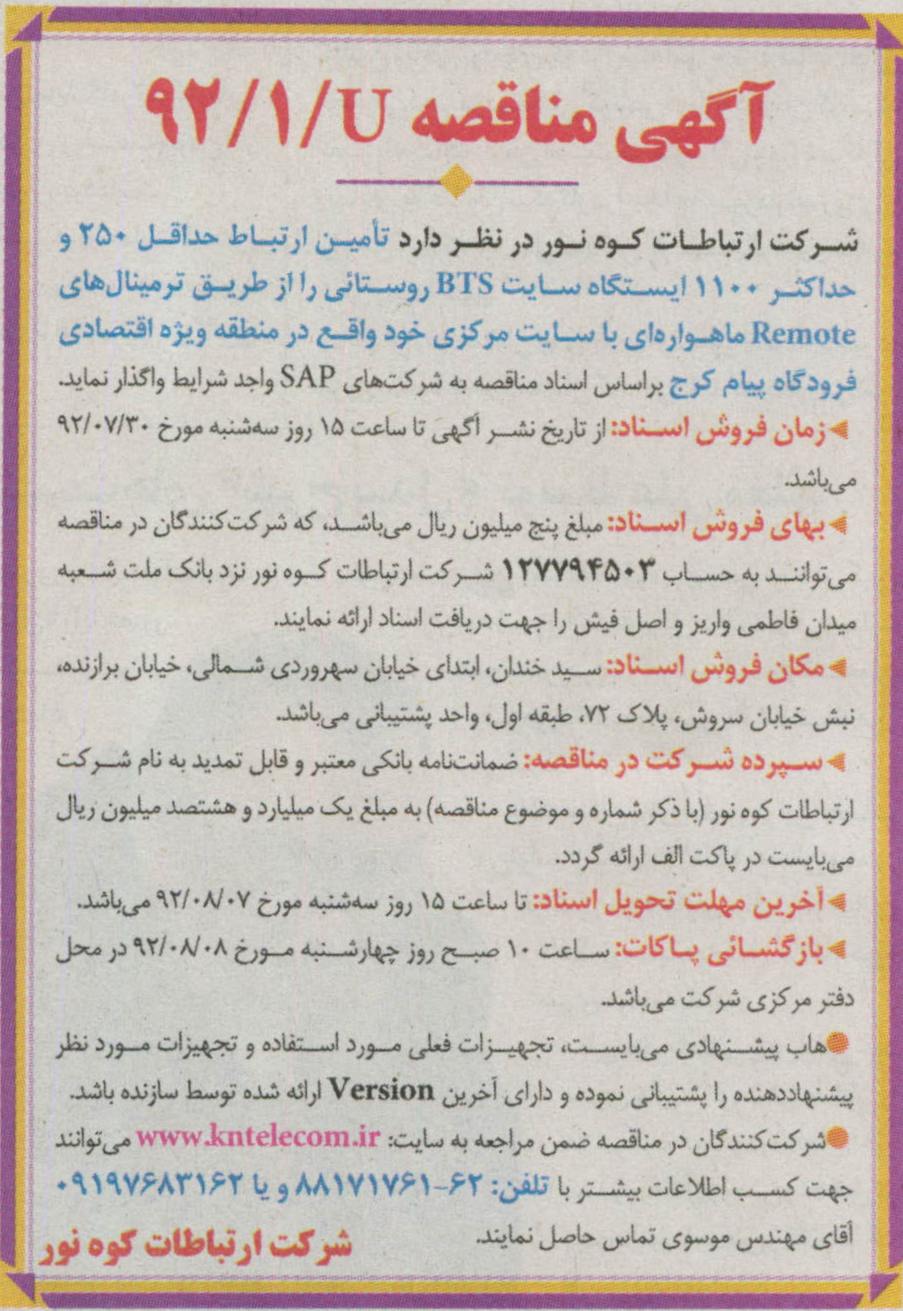 آگهی مناقصه ۹۲/۱/U
شرکت ارتباطات کوه نور در نظر دارد تأمین ارتباط حداقل ۲۵۰ و
حداکثر ۱۱۰۰ ایستگاه سایت BTS روستائی را از طریق ترمینال‌های
Remote ماهواره‌ای با سایت مرکزی خود واقع در منطقه ویژه اقتصادی
فرودگاه پیام کرج براساس اسناد مناقصه به شرکت‌های SAP واجد شرایط واگذار نماید.
زمان فروش اسناد: از تاریخ نشر آگهی تا ساعت ۱۵ روز سه‌شنبه مورخ ۹۲/۰۷/۳۰
می‌باشد.
بهای فروش اسناد: مبلغ پنج میلیون ریال می‌باشد، که شرکت‌کنندگان در مناقصه
می‌توانند به حساب ۱۲۷۷۹۴۵۰۳ شرکت ارتباطات کوه نور نزد بانک ملت شعبه
میدان فاطمی واریز و اصل فیش را جهت دریافت اسناد ارائه نمایند.
مکان فروش اسناد: سید خندان، ابتدای خیابان سهروردی شمالی، خیابان برازنده،
نبش خیابان سروش، پلاک ۷۲، طبقه اول، واحد پشتیبانی می‌باشد.
سپرده شرکت در مناقصه: ضمانت‌نامه بانکی معتبر و قابل تمدید به نام شرکت
ارتباطات کوه نور (با ذکر شماره و موضوع مناقصه) به مبلغ یک میلیارد و هشتصد میلیون ریال
می‌بایست در پاکت الف ارائه گردد.
آخرین مهلت تحویل اسناد: تا ساعت ۱۵ روز سه‌شنبه مورخ ۹۲/۰۸/۰۷ می‌باشد.
بازگشائی پاکات: ساعت ۱۰ صبح روز چهارشنبه مورخ ۹۲/۰۸/۰۸ در محل
دفتر مرکزی شرکت می‌باشد.
هاب پیشنهادی می‌بایست، تجهیزات فعلی مورد استفاده و تجهیزات مورد نظر
پیشنهاددهنده را پشتیبانی نموده و دارای آخرین Version ارائه شده توسط سازنده باشد.
شرکت‌کنندگان در مناقصه ضمن مراجعه به سایت: www.kntelecom.ir می‌توانند
جهت کسب اطلاعات بیشتر با تلفن: ۶۲-۸۸۱۷۱۷۶۱ و یا ۰۹۱۹۷۶۸۳۱۶۲
آقای مهندس موسوی تماس حاصل نمایند.
شرکت ارتباطات کوه نور